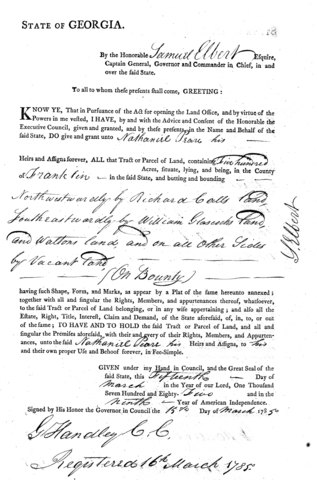 STATE OF GEORGIA.
By the Honorable Samuel Elbert Esquire,
Captain General, Governor and Commander in Chief, in and
over the said State.
To all to whom these presents shall come, GREETING:
KNOW YE, That in Pursuance of the Act for opening the Land Office, and by virtue of the
Powers in me vested, I HAVE, by and with the Advice and Consent of the Honorable the
Executive Council, given and granted, and by these presents, in the Name and Behalf of the
said State, DO give and grant unto Nathaniel his
Heirs and Assigns forever, ALL that Tract or Parcel of Land, containing five hundred
Acres, situate, lying, and being, in the County
of Franklin in the said State, and butting and bounding
Northwestwardly by Richard Calls land
Southeastwardly by William Glascocks land
and Waltons land, and on all Other Sides
by Vacant land
(On Bounty)
having such Shape, Form, and Marks, as appear by a Plat of the same hereunto annexed:
together with all and singular the Rights, Members, and appurtenances thereof, whatsoever,
to the said Tract or Parcel of Land belonging, or in any wise appertaining; and also all the
Estate, Right, Title, Interest, Claim and Demand, of the State aforesaid, of, in, to, or out
of the same; TO HAVE AND TO HOLD the said Tract or Parcel of Land, and all and
singular the Premises aforesaid, with their and every of their Rights, Members, and Appurten-
ances, unto the said Nathaniel his Heirs and Assigns, to his
and their own proper Use and Behoof forever, in Fee-Simple.
GIVEN under my Hand in Council, and the Great Seal of the
said State, this fifteenth Day of
March in the Year of our Lord, One Thousand
Seven Hundred and Eighty- five and in the
Ninth Year of American Independence.
Signed by His Honor the Governor in Council the 15th Day of March 1785
G Handley C. C.
Registered 16th March 1785
S Elbert